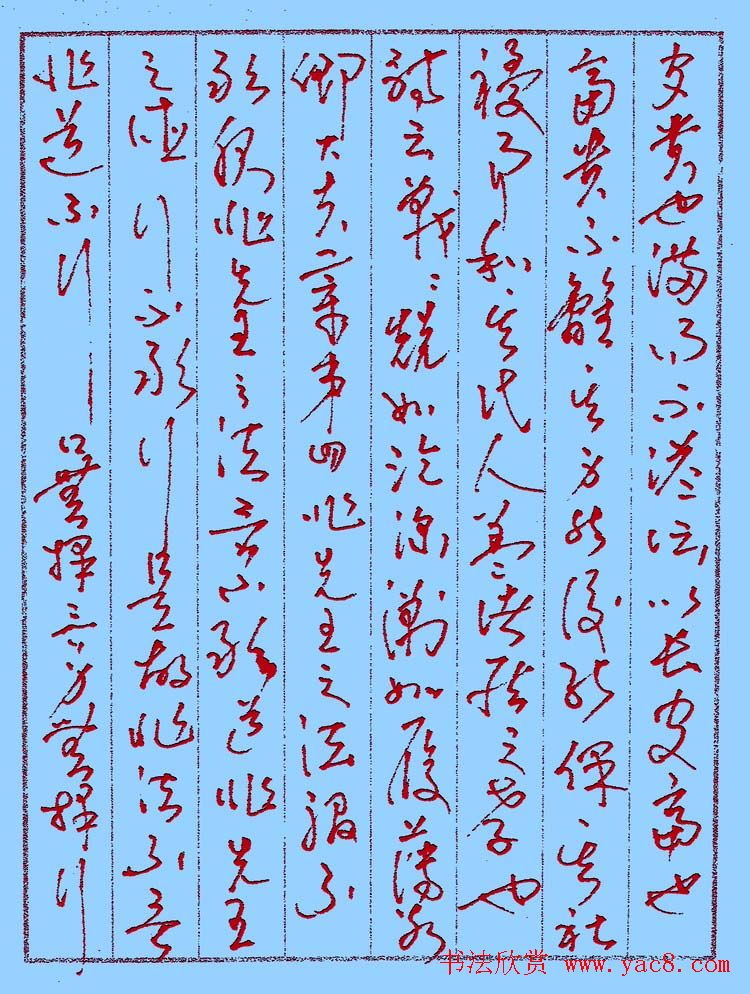 守貴也滿而不溢所以長守富也
富貴不離其身然後能保其社
稷而和其民人蓋諸侯之孝也
詩云戰〻兢如臨深淵如履薄冰
卿大夫章第四非先王之法服不
敢服非先王之法言不敢道非先王
之德行不敢行是故非法不言
非道不行口無擇言身無擇行
书法欣赏 www.yac8.com